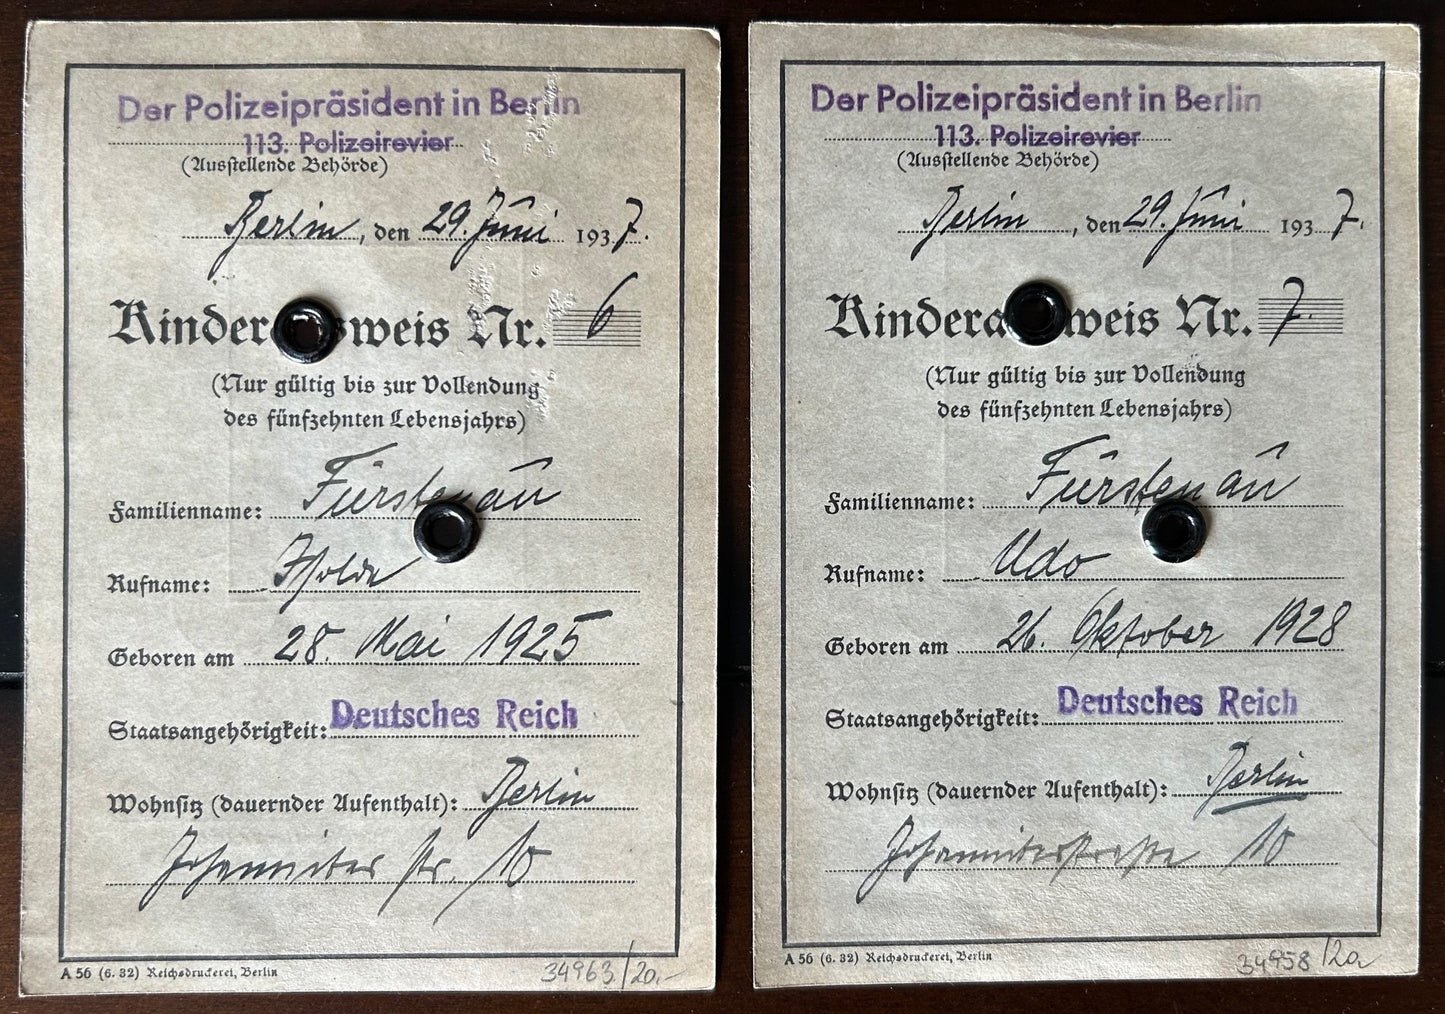 Der Polizeipräsident in Berlin
113. Polizeirevier
(Ausstellende Behörde)
Berlin, den 29. Juni 1937.
Kinderausweis Nr. 6
(Nur gültig bis zur Vollendung
des fünfzehnten Lebensjahrs)
Familienname: Fürstenau
Rufname: Isolde
Geboren am 28. Mai 1925
Staatsangehörigkeit: Deutsches Reich
Wohnsitz (dauernder Aufenthalt): Berlin
Johanniter str. 10
A 56 (6. 32) Reichsdruckerei, Berlin
34963/20.-
Der Polizeipräsident in Berlin
113. Polizeirevier
(Ausstellende Behörde)
Berlin, den 29. Juni 1937.
Kinderausweis Nr. 7.
(Nur gültig bis zur Vollendung
des fünfzehnten Lebensjahrs)
Familienname: Fürstenau
Rufname: Udo
Geboren am 26. Oktober 1928
Staatsangehörigkeit: Deutsches Reich
Wohnsitz (dauernder Aufenthalt): Berlin
Johanniterstraße 10
A 56 (6. 32) Reichsdruckerei, Berlin
34958/20.